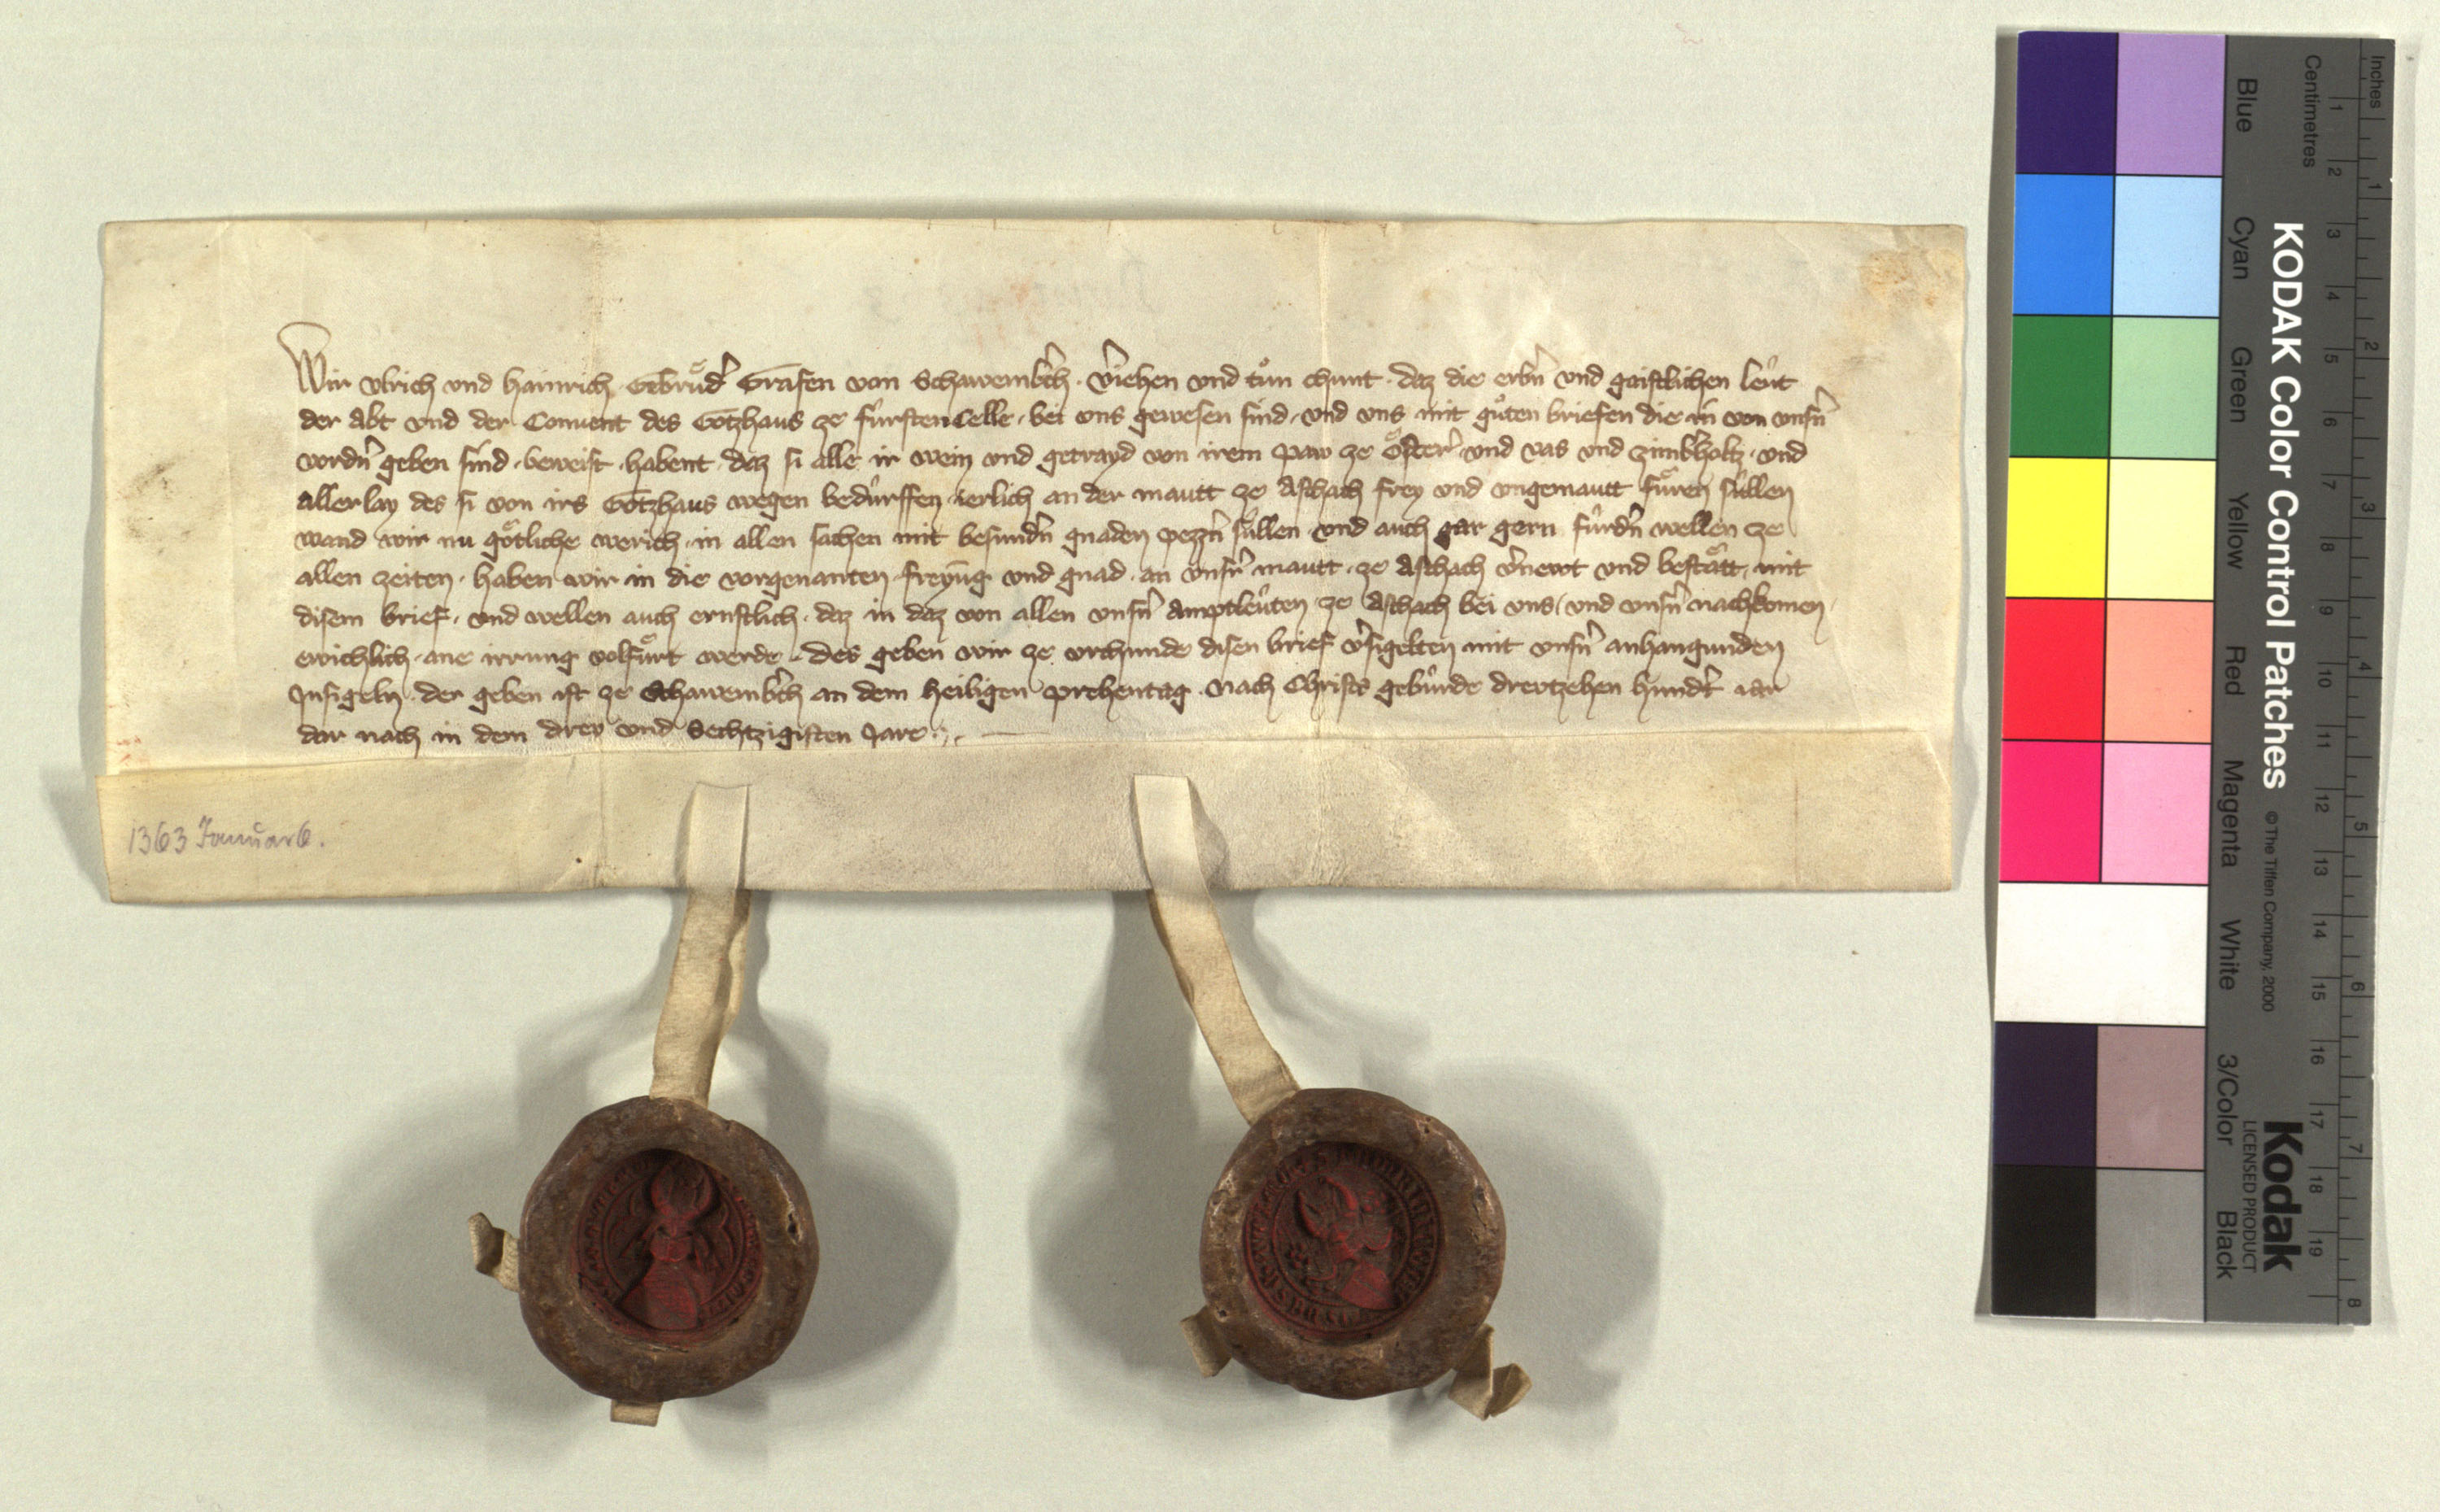 Wir Vlrich vnd Hainrich Gebrůder Grafen von Schawemberch · v̓iehen vnd tůn chunt · daz die erbn̓ vnd gaistlichen leût
der Abt vnd der Conuent des Gotzhaus ze fûrsten Celle · bei vns gewesen sind · vnd vns mit gůten briefen die in von vnsn̓
vordn̓ geben sind · beweist habent · daz si alle ir wein vnd getrayd von irem paw ze Ôster̓ vnd vas vnd zimb̓holtz · vnd
allerlay des si von irs Gotzhaus wegen bedûrffen ierlich an der mautt ze Aschach frey vnd vngemautt fûren sûllen
wand wir nu gôtliche werich · in allen sachen mit besundn̓ gnaden pezzn̓ sûllen vnd auch gar gern fûrdn̓ wellen ze
allen zeiten · haben wir in die vorgenanten freyūg vnd gnad · an vnsr̓ mautt · ze Aschach v̓newt vnd bestâtt mit
disem brief · vnd wellen auch ernstlich · daz in daz von allen vnsn̓ Amptleûten ze Aschach bei vns / vnd vnsn̓ nachkomen
ewichlich · ane irrung volfûrt werde · Des geben wir ze vrchunde disen brief v̓sigelten mit vnsn̓ anhangunden
Jnsigeln · der geben ist ze Schawemb̓ch an dem heiligen Prehentag · Nach Christs gebûrde drewtzehen hundt̓ iar
dar nach in dem drey vnd Sechtzigisten Jare.
1363 Januar 6.
Inches
Centimetres
1 2 3 4 5 6 7 8 9 10 11 12 13 14 15 16 17 18 19
1 2 3 4 5 6 7 8
KODAK Color Control Patches
© The Tiffen Company, 2000
Kodak
LICENSED PRODUCT
Blue Cyan Green Yellow Red Magenta White 3/Color Black